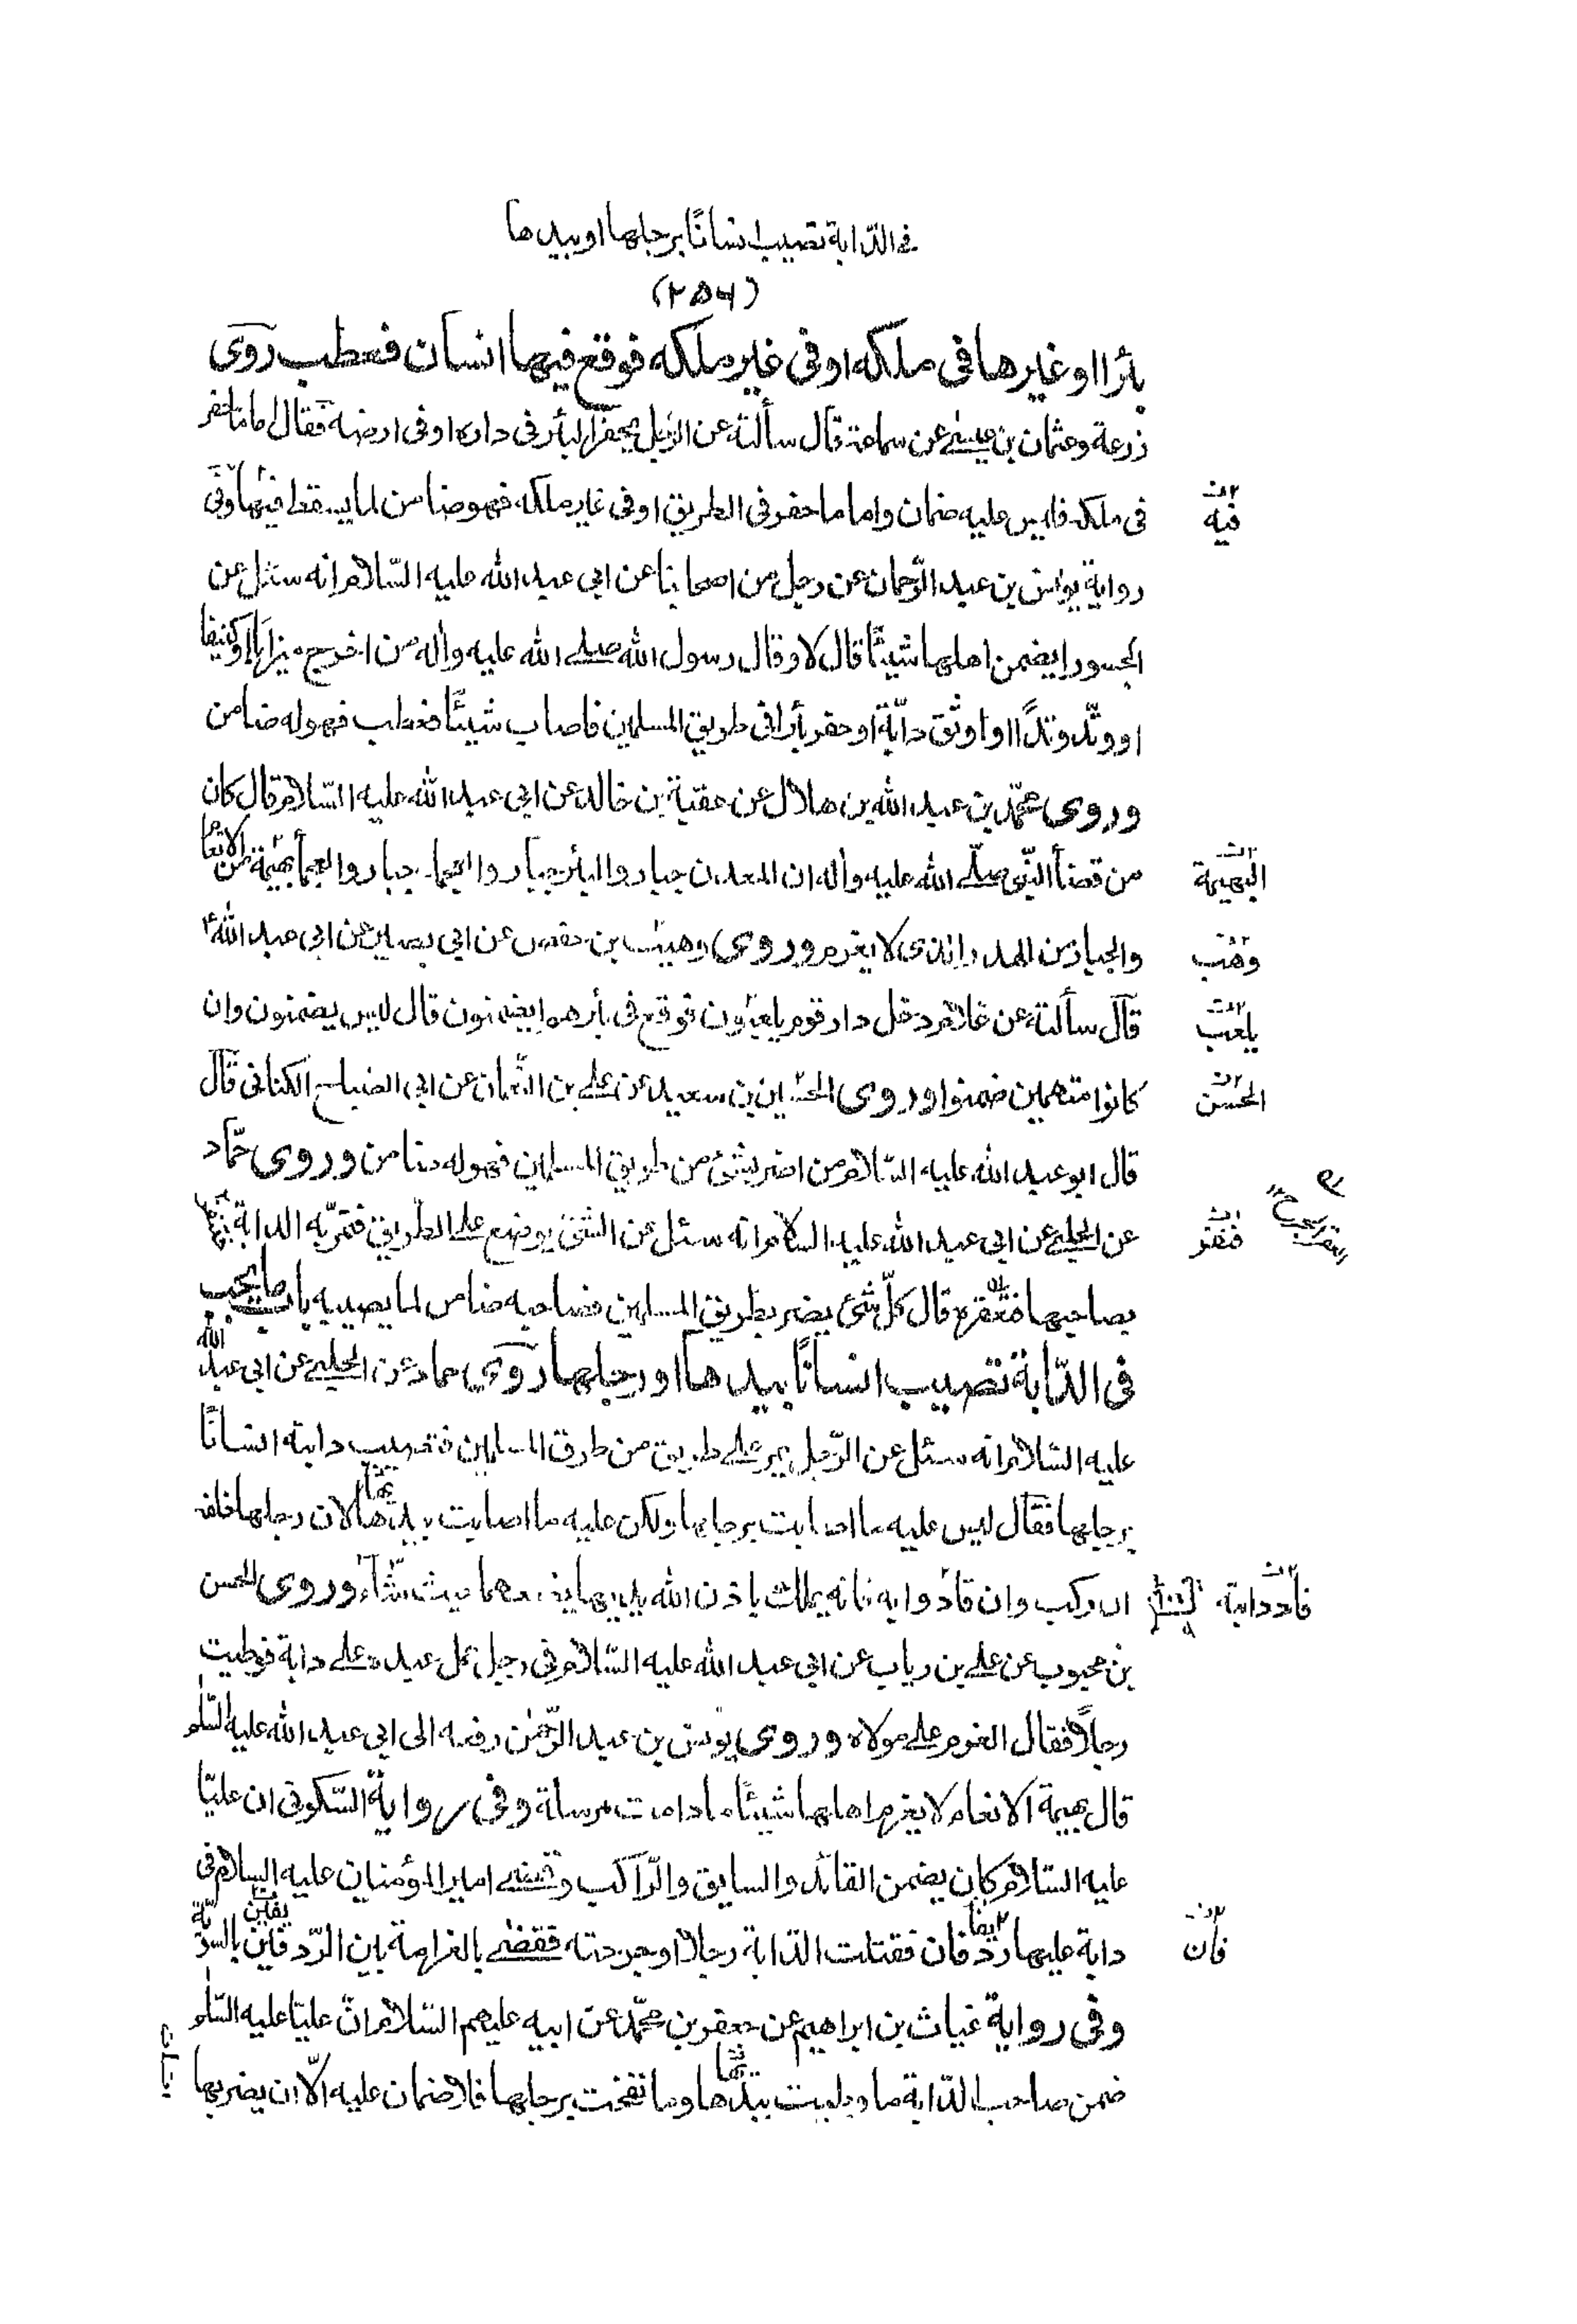 فی الدّابة تصیب انسانًا برجلها او بیدها
(۲۵۶)
بأرا او غیرها فی ملکه او فی غیر ملکه فوقع فیها انسان فعطب روی
زرعة وعثمان بن عیسٰے عن سماعة قال سألته عن الرّجل یحفر البأر فی داره او فی ارضه فقال اما ما حفر
فی ملکه فلیس علیه ضمان واما ما حفر فی الطریق او فی غیر ملکه فهو ضامن لما یسقط فیها وفی
فیه
روایة یونس بن عبد الرّحمان عن رجل من اصحابنا عن ابی عبد الله علیه السّلام انه سئل عن
الجسور ایضمن اهلها شیئًا قال لا وقال رسول الله صلے الله علیه واٰله من اخرج میزابا او کنیفا
او وتّد وتدًا او اوثق دابّة او حفر بأرا فی طریق المسلمین فاصاب شیئًا فعطب فهو له ضامن
وروی محمّد بن عبد الله بن هلال عن عقبة بن خالد عن ابی عبد الله علیه السّلام قال کان
من قضأ النّبی صلّے الله علیه واٰله ان المعدن جبار والبأر جبار والعجمأ جبار والعجمأ بهیمة من الانعام
البهیمة
والجبار من الهدر الذی لا یغرم وروی وهیب بن حفص عن ابی بصیر عن ابی عبد الله ؑ
وهب
قال سألته عن غلام دخل دار قوم یلعبون فوقع فی بأرهم ایضمنون قال لیس یضمنون وان
یلعب
کانوا متهمین ضمنوا وروی الحسین بن سعید عن علے بن النّعمان عن ابی الصباح الکنانی قال
الحسن
قال ابو عبد الله علیه السّلام من اضر بشئ من طریق المسلمین فهو له ضامن وروی حمّاد
عن الحلبے عن ابی عبد الله علیه السلام انه سئل عن الشئ یوضع علے الطریق فتمرّ به الدابة
فتعقر
بصاحبها فتعقره قال کلّ شئ یضر بطریق المسلمین فصاحبه ضامن لما یصیبه باب ما یجب
فی الدّابة تصیب انسانًا بیدها او رجلها روی حماد عن الحلبے عن ابی عبد الله
علیه السّلام انه سئل عن الرّجل یمر علے طریق من طرق المسلمین فتصیب دابته انسانًا
برجلها فقال لیس علیه ما اصابت برجلها ولکن علیه ما اصابت بیدها لان رجلها خلفه
ان رکب وان قاد دوابه فانه یملك باذن الله یدیها یضعهما حیث شاء وروی الحسن
قاد دابته
بن محبوب عن علے بن رباب عن ابی عبد الله علیه السّلام فی رجل حمل عبده علے دابة فوطیت
رجلًا فقال الغرم علے مولاه وروی یونس بن عبد الرّحمٰن رفعه الی ابی عبد الله علیه السّلٰم
قال بهیمة الانعام لا یغرم اهلها شیئًا ما دامت مرسلة وفی روایة السّکونی ان علیّا
علیه السّلام کان یضمن القائد والسایق والرّاکب وقضے امیر المؤمنین علیه السلام فی
دابة علیها ردفان فقتلت الدّابة رجلا او جرحته فقضٰے بالغرامة بین الرّدفین بالسویّة
فان
وفی روایة غیاث بن ابراهیم عن جعفر بن محمّد عن ابیه علیهم السّلام انّ علیّا علیه السّلٰم
ضمن صاحب الدّابة ما وطیت بیدها وما نفخت برجلها فلا ضمان علیه الّا ان یضربها